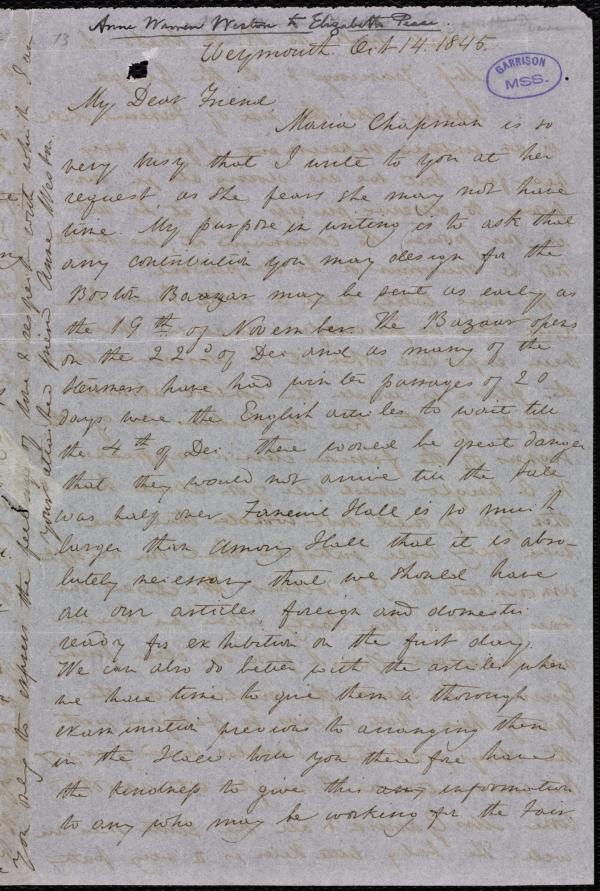 Anne Warren Weston to Elizabeth Pease.
13
Weymouth. Oct 14. 1845.
GARRISON
MSS.
My Dear Friend
Maria Chapman is so
very busy that I write to you at her
request, as she fears she may not have
time. My purpose in writing is to ask that
any contribution you may design for the
Boston Bazaar may be sent as early as
the 19th of November. The Bazaar opens
on the 22d of Dec and as many of the
steamers have had winter passages of 20
days were the English articles to wait till
the 4th of Dec. there would be great danger
that they would not arrive till the Sale
was half over. Faneuil Hall is so much
larger than Amory Hall that it is abso-
lutely necessary that we should have
all our articles, foreign and domestic
ready for exhibition on the first day.
We can also do better with the articles when
we have time to give them a thorough
examination previous to arranging them
in the Hall. Will you therefore have
the kindness to give this any information
to any who may be working for the Fair
You may to express the feelings of love & respect with which I am
your attached friend Anne Weston